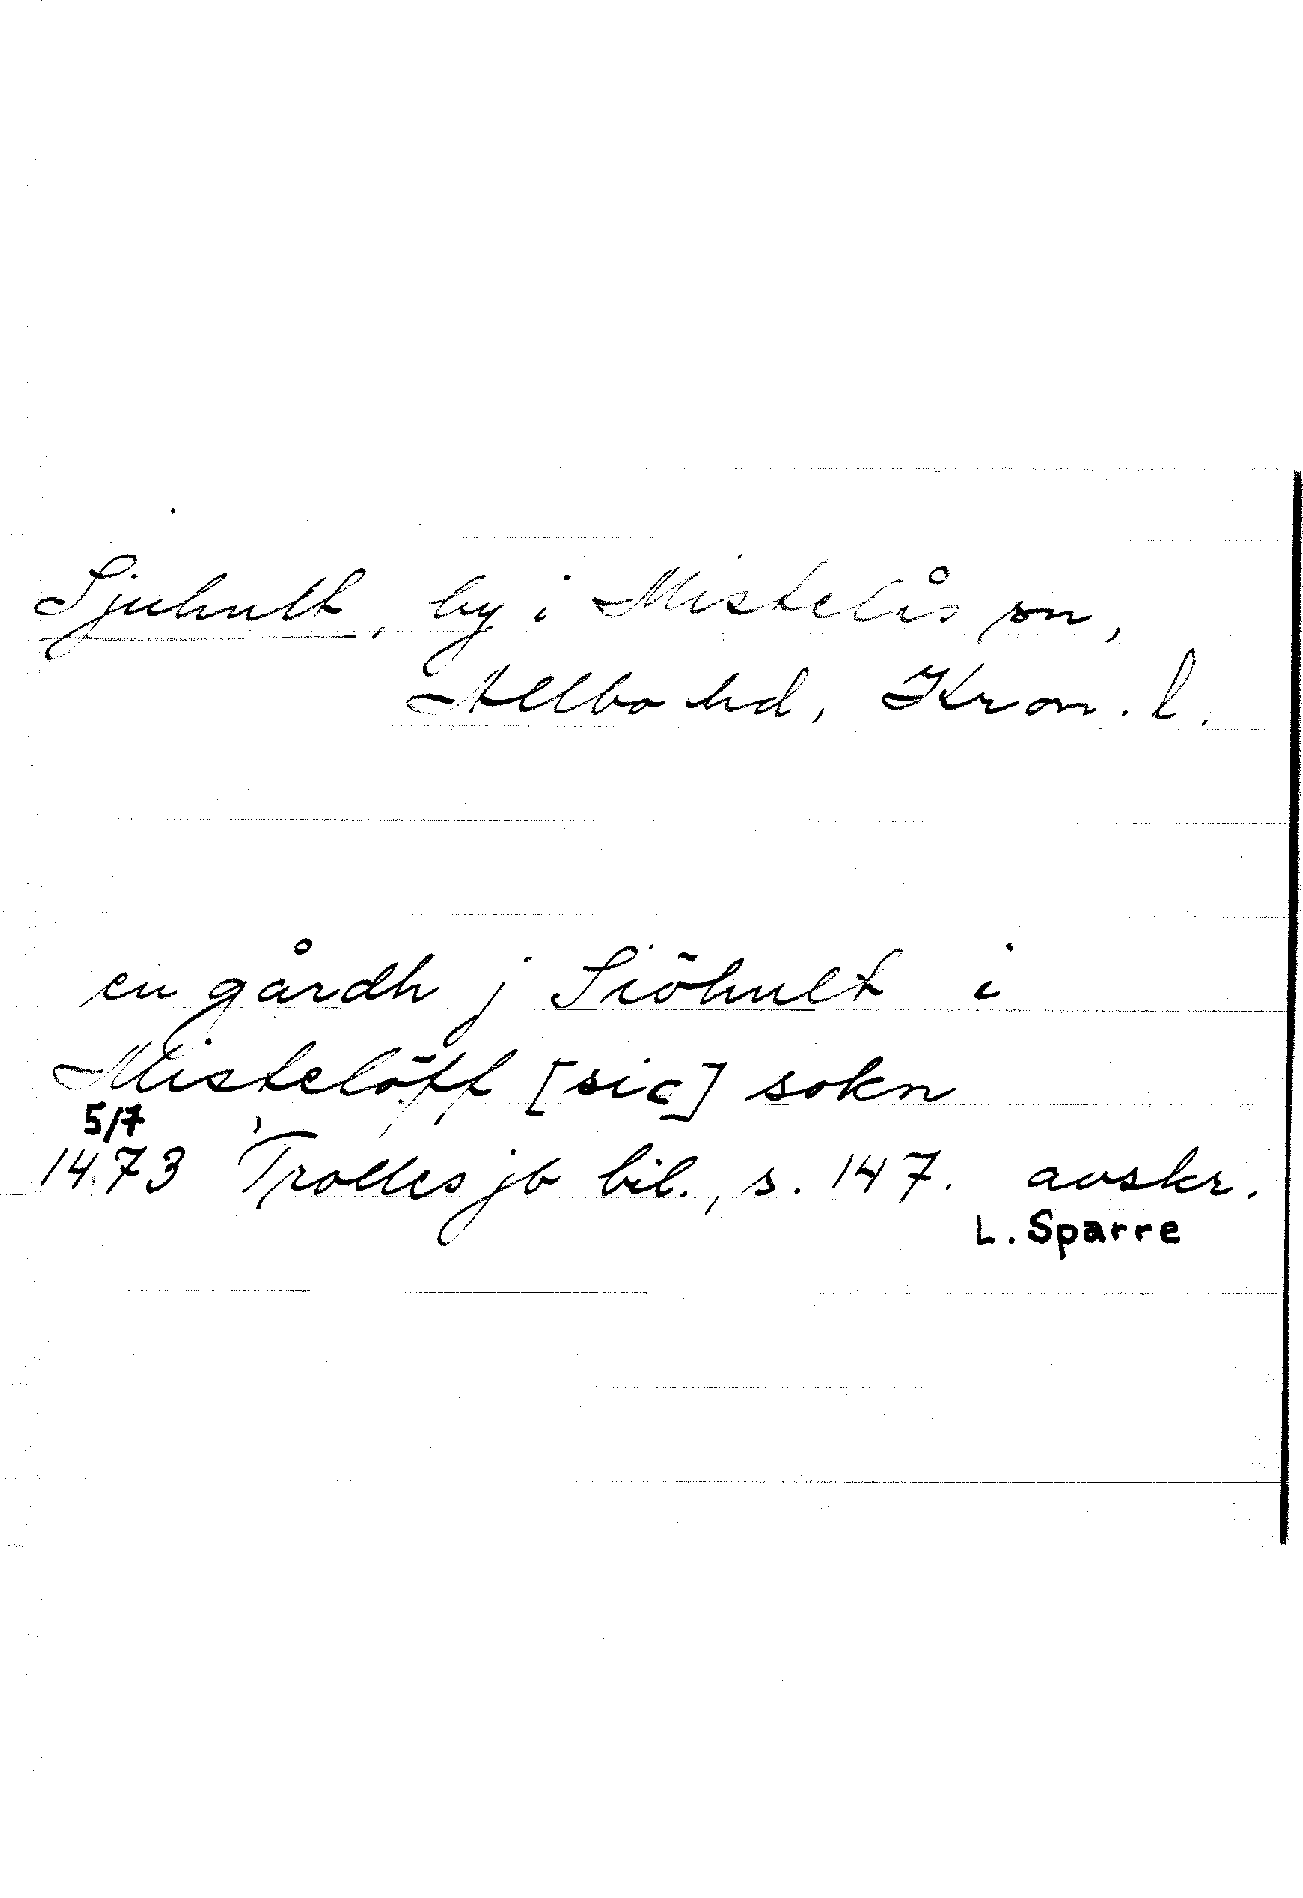 Sjuhult, by i Mistelås sn,
Allbo hd, Kron. l.
en gårdh j Siöhult i
Mistelöff [sic] sokn
5/7
1473 Trolles jb bil., s. 147. avskr.
L. Sparre